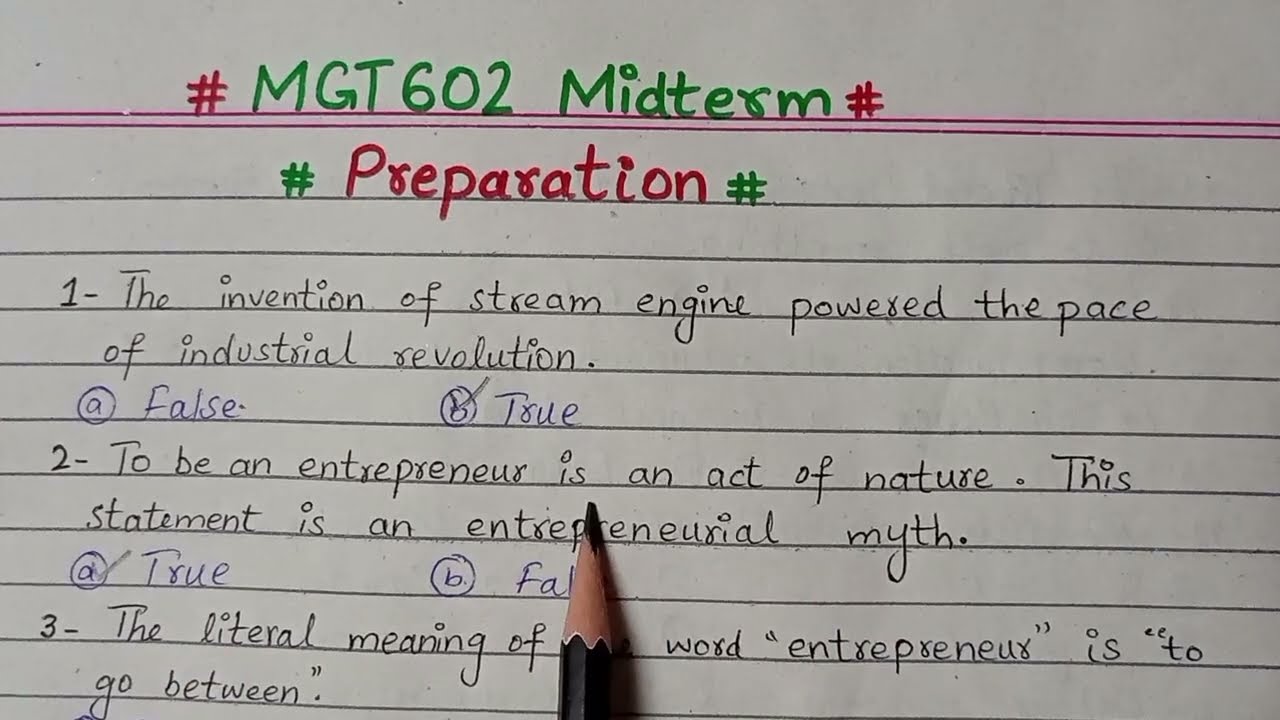 # MGT602 Midterm #
# Preparation #
1- The invention of stream engine powered the pace
of industrial revolution.
(a) False. (b) True
2- To be an entrepreneur is an act of nature. This
statement is an entrepreneurial myth.
(a) True (b.)
3- The literal meaning of word "entrepreneur" is "to
go between".